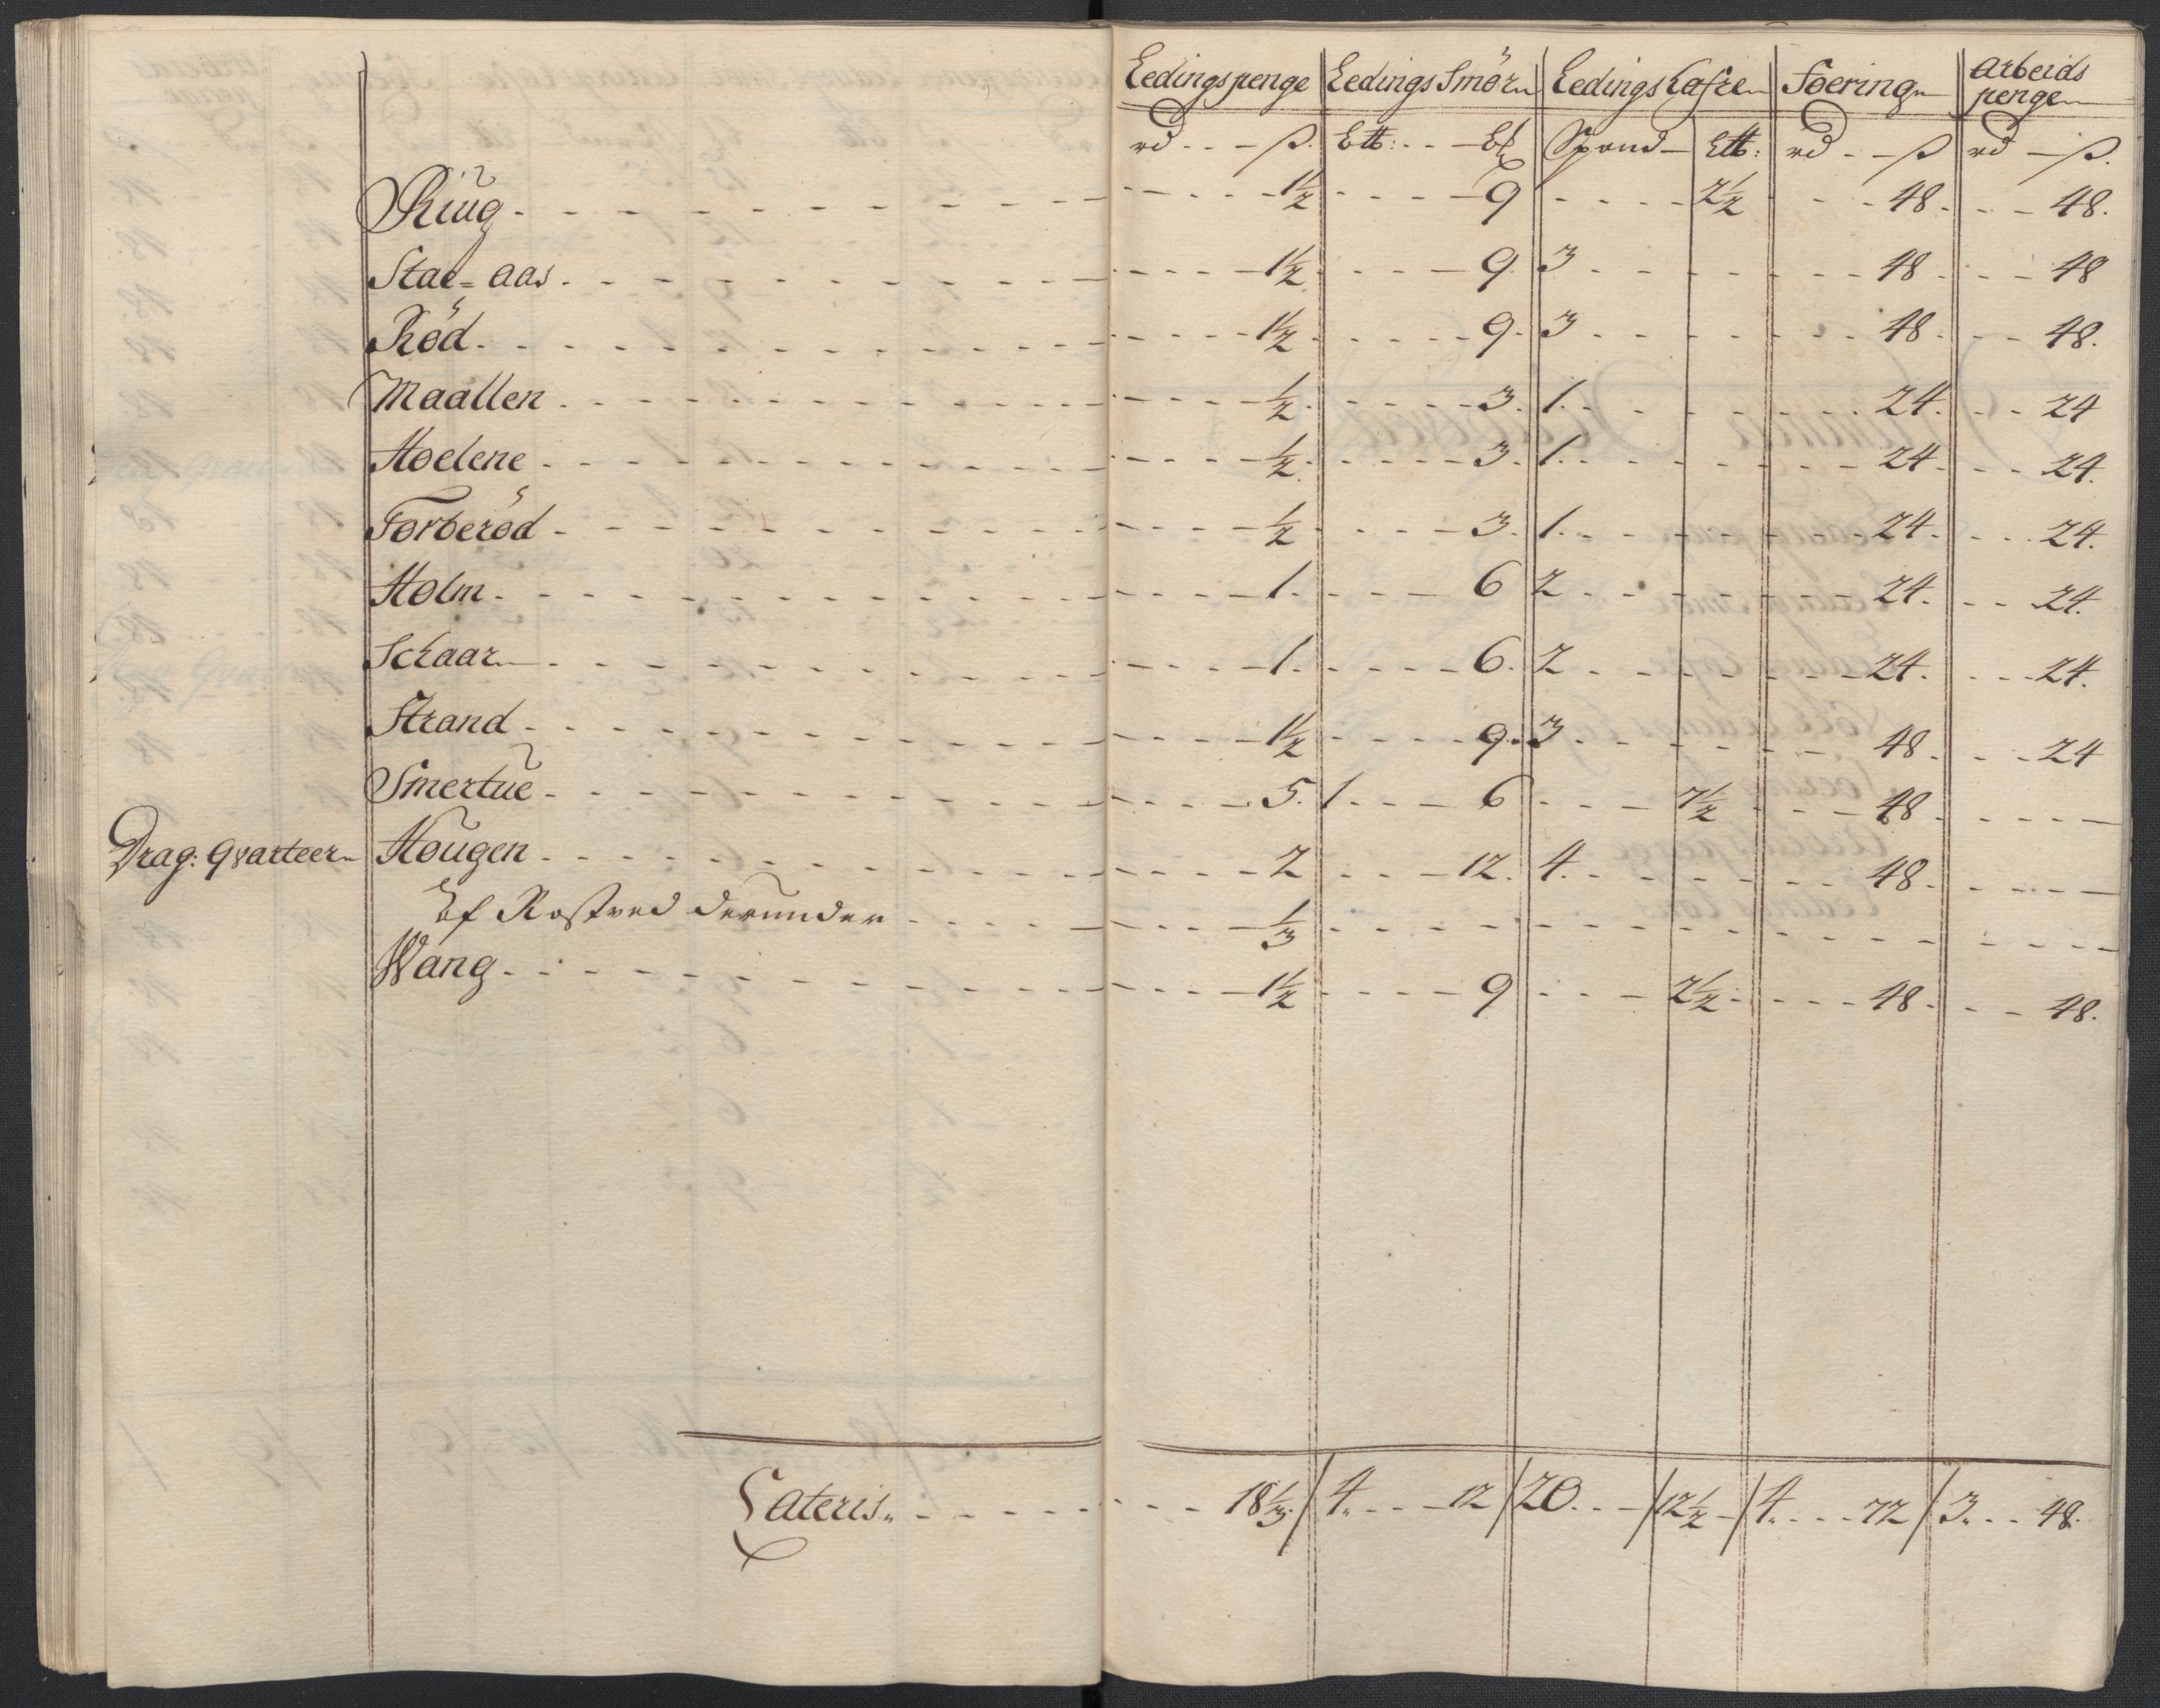 Ledingspenge Ledings Smör Ledings Hafre Foering Arbeids penge
rd - ß. B℔: - Spand - ℔: rd - ß rd - ß.
Riug - 1½ - 9 - 2½ - 48. - 48.
Stae=aas. - 1½ - 9. 3 - 48 - 48
Röd. - 1½ - 9. 3 - 48. - 48.
Maallen - ½. - 3. 1. - 24. - 24
Hoelene - ½. - 3. 1. - 24. - 24.
Torberöd - ½ - 3. 1. - 24. - 24.
Holm. - 1. - 6 2 - 24. - 24.
Schaar - 1. - 6. 2 - 24. - 24.
Strand - 1½ - 9. 3 - 48. - 24
Smertue - 5. 1. - 6 - 7½ - 48. -
Drag: Qvarteer Hougen - 2 - 12. 4. - 48. -
Af Rostved derunder - ⅓ -
Wang - 1½ - 9 - 2½ - 48. - 48.
Lateris. - 18⅓. / 4. - 12 / 20. - / 12½ - / 4. - 72 / 3. - 48.